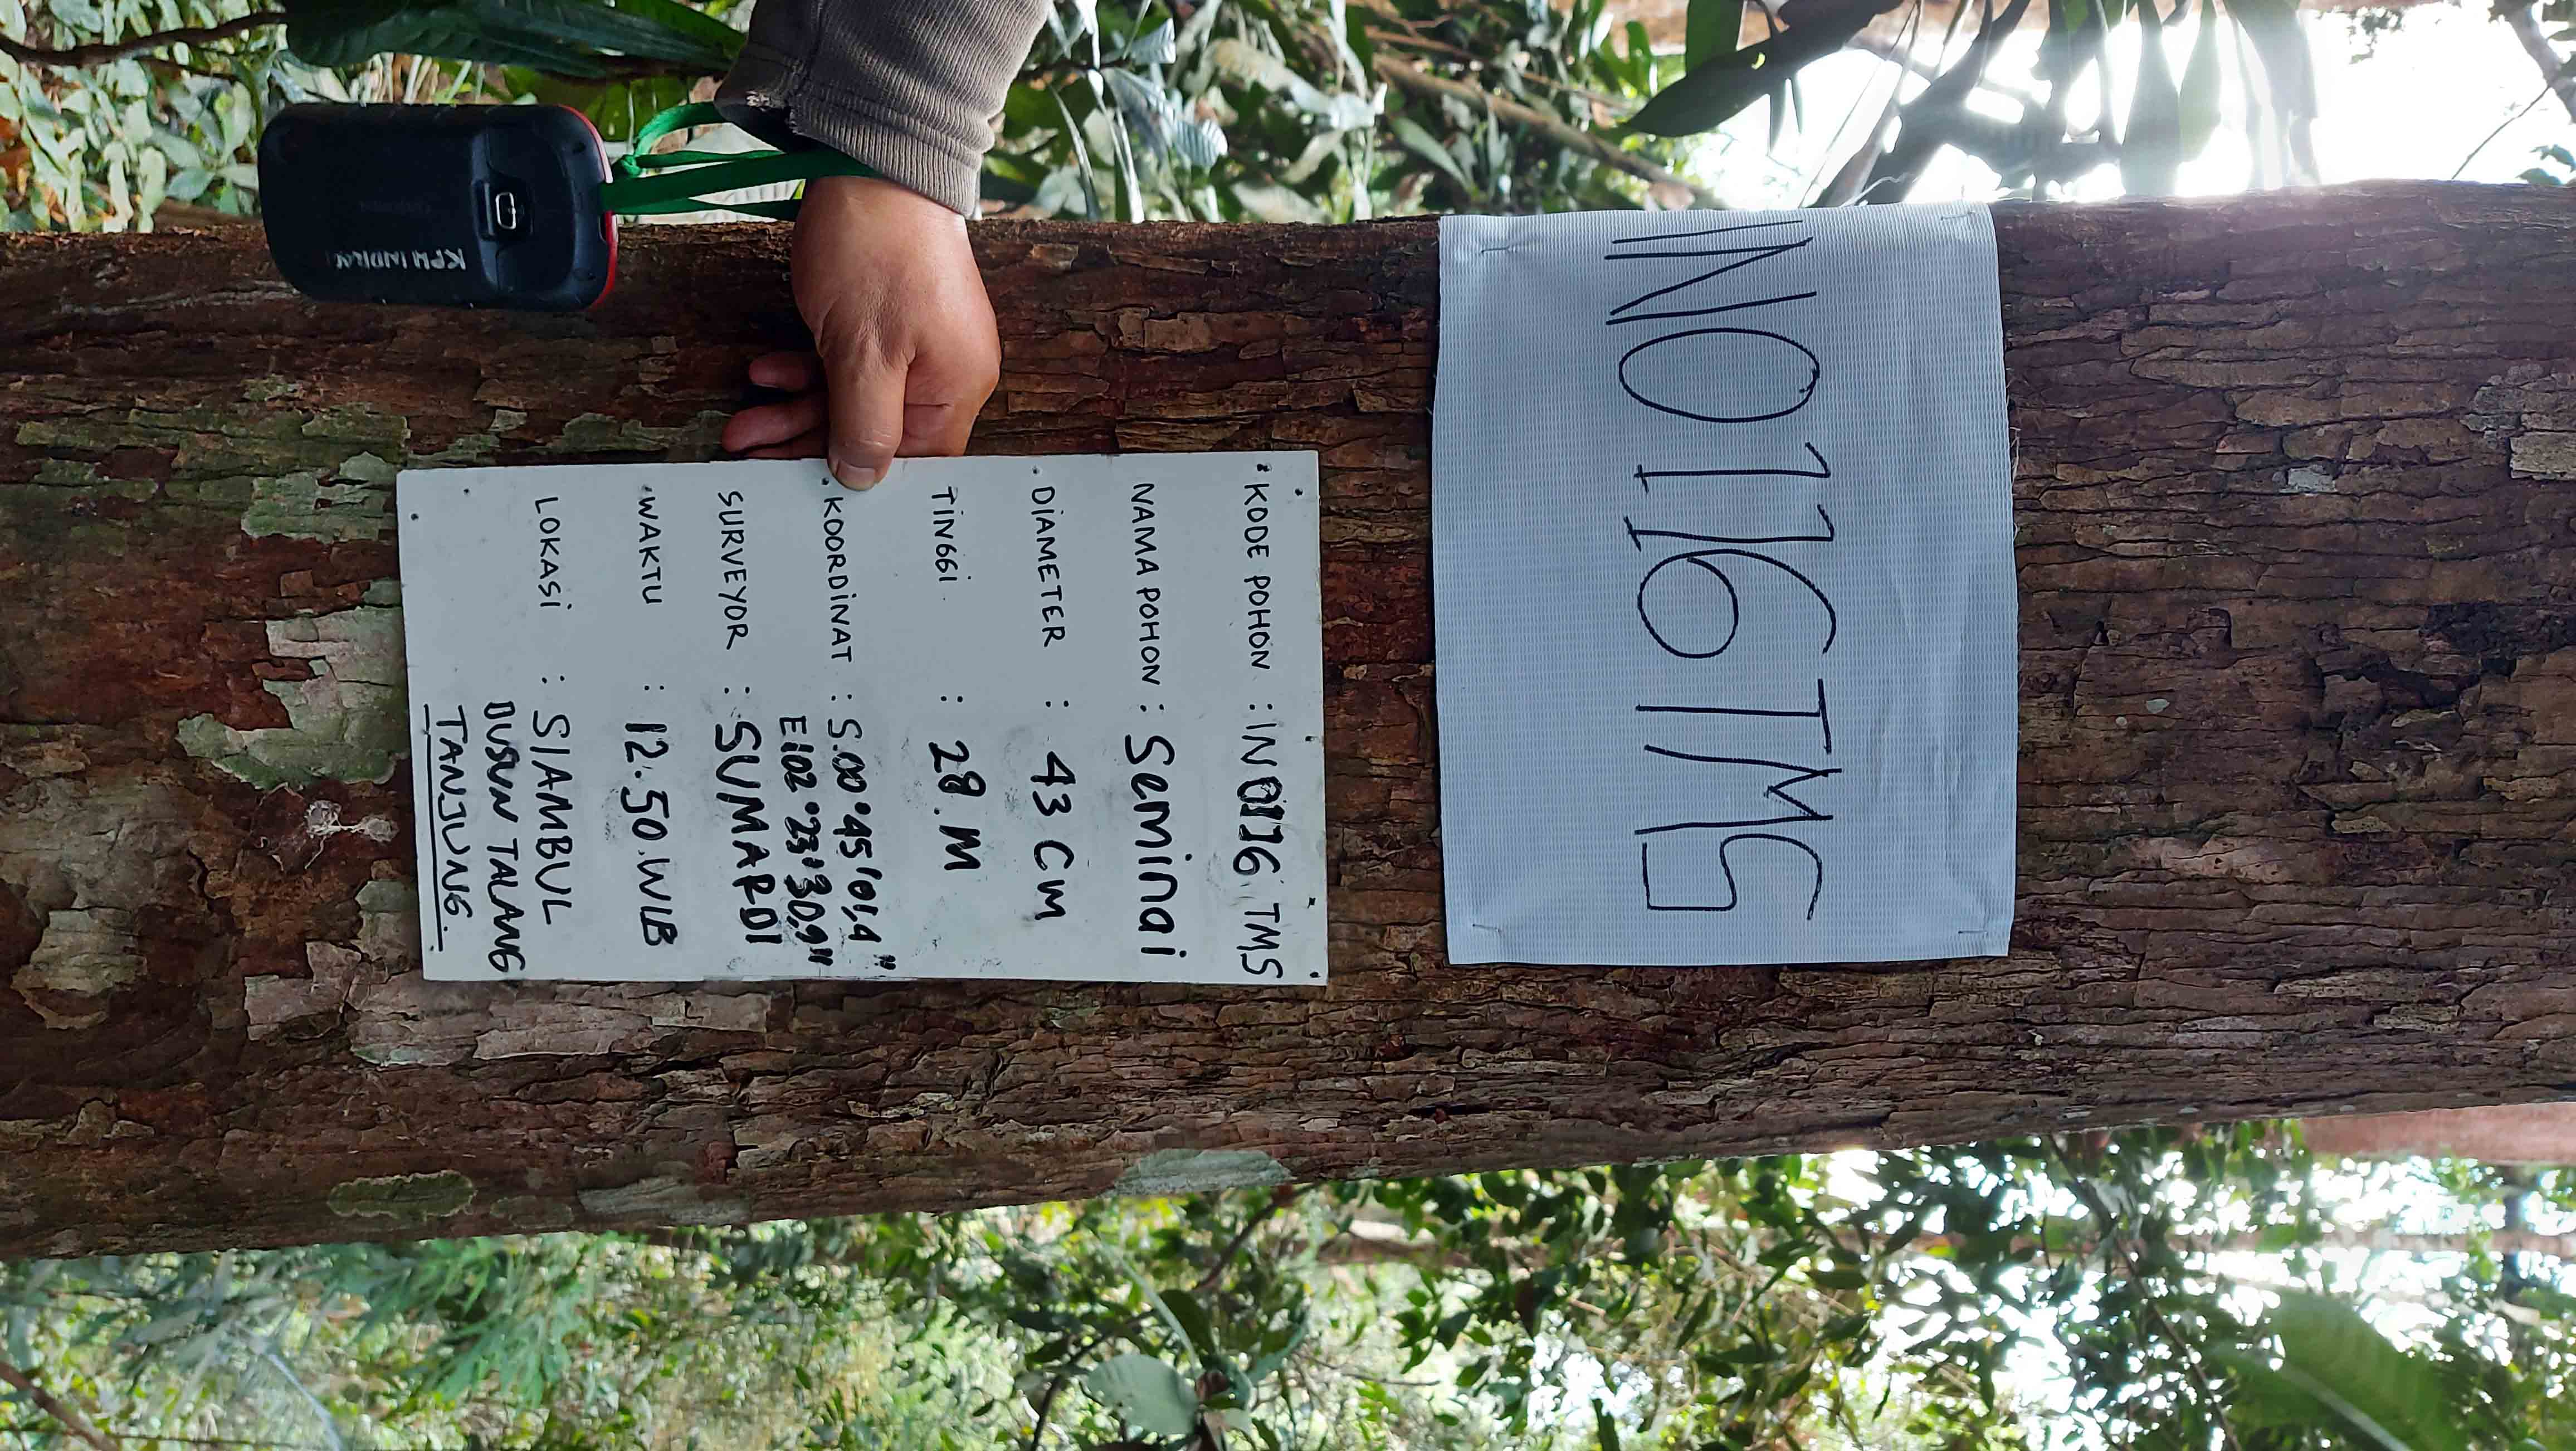 INO116TMS
KODE POHON : INO116 TMS
NAMA POHON : Seminai
DIAMETER : 43 Cm
TINGGI : 28.M
KOORDINAT : S.00°45'01,4"
E102°23'30,9"
SURVEYOR : SUMARDI
WAKTU : 12.50.WIB
LOKASI : SIAMBUL
DUSUN TALANG
TANJUNG.
KPH INDRAGI